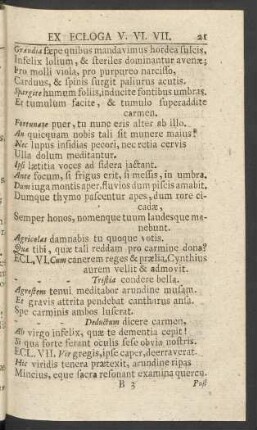 EX ECLOGA V. VI. VII. 21
Grandia sæpe quibus mandavimus hordea sulcis,
Infelix lolium, & steriles dominantur avenæ;
Pro molli viola, pro purpureo narcisso,
Carduus, & spinis surgit paliurus acutis.
Spargite humum foliis, inducite fontibus umbras.
Et tumulum facite, & tumulo superaddite
carmen.
Fortunate puer, tu nunc eris alter ab illo.
An quicquam nobis tali sit munere majus?
Nec lupus insidias pecori, nec retia cervis
Ulla dolum meditantur.
Ipsi lætitia voces ad sidera jactant.
Ante focum, si frigus erit, si messis, in umbra.
Dum juga montis aper, fluvios dum piscis amabit,
Dumque thymo pascentur apes, dum rore ci-
cadæ,
Semper honos, nomenque tuum laudesque ma-
nebunt.
Agricolas damnabis tu quoque votis.
Quæ tibi, quæ tali reddam pro carmine dona?
ECL. VI. Cum canerem reges & prælia, Cynthius
aurem vellit & admovit.
- - Tristia condere bella.
Agrestem tenui meditabor arundine musam.
Et gravis attrita pendebat cantharus ansa.
Spe carminis ambos luserat.
- - - Deductum dicere carmen.
Ah virgo infelix, quæ te dementia cepit!
Si qua forte ferant oculis sese obvia nostris.
ECL. VII. Vir gregis, ipse caper, deerraverat.
Hic viridis tenera prætexit, arundine ripas
Mincius, eque sacra resonant examina quercu.
B 3 Post